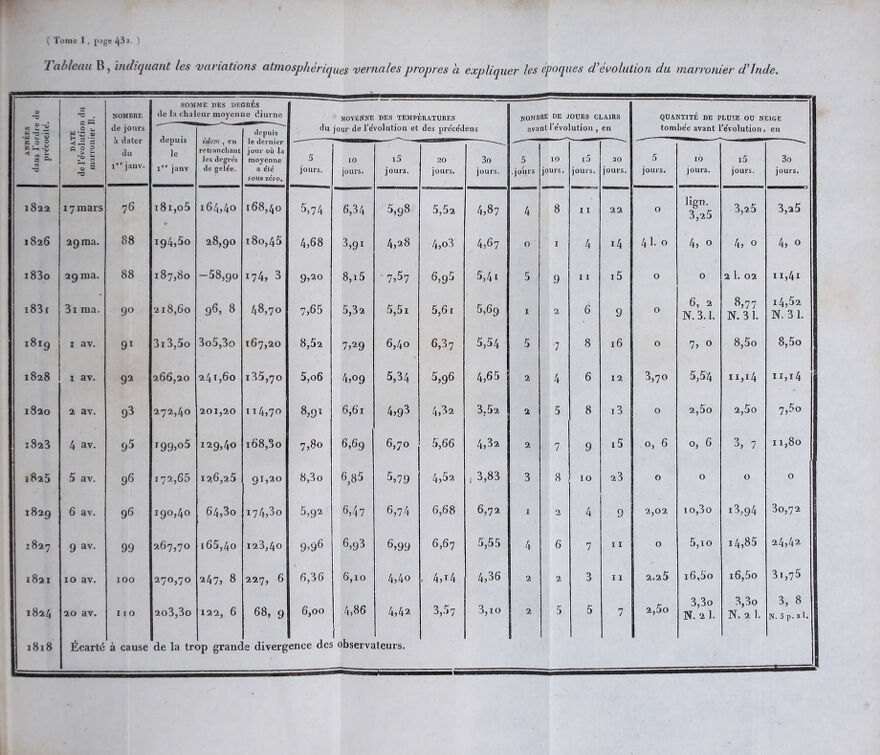 ( Tome I, page 432. )
Tableau B, indiquant les variations atmosphériques vernales propres à expliquer les époques d'évolution du marronier d'Inde.
ANNÉES dans l'ordre de précocité.
DATE de l'évolution du marronier B.
NOMBRE de jours à dater du 1er janv.
SOMME DES DEGRÉS de la chaleur moyenne diurne
depuis le 1er janv
idem, en retranchant les degrés de gelée.
depuis le dernier jour où la moyenne a été sous zéro.
MOYENNE DES TEMPÉRATURES du jour de l'évolution et des précédens
5 jours. 10 jours. 15 jours. 20 jours. 30 jours.
NOMBRE DE JOURS CLAIRS avant l'évolution, en
5 jours 10 jours. 15 jours. 20 jours.
QUANTITÉ DE PLUIE OU NEIGE tombée avant l'évolution, en
5 jours. 10 jours. 15 jours. 30 jours.
1822 17 mars 76 181,05 164,40 168,40 5,74 6,34 5,98 5,52 4,87 4 8 11 22 0 lign. 3,25 3,25 3,25
1826 29 ma. 88 194,50 28,90 180,45 4,68 3,91 4,28 4,03 4,67 0 1 4 14 4 l. 0 4, 0 4, 0 4, 0
1830 29 ma. 88 187,80 —58,90 174, 3 9,20 8,15 7,57 6,95 5,41 5 9 11 15 0 0 2 l. 02 11,41
1831 31 ma. 90 218,60 96, 8 48,70 7,65 5,32 5,51 5,61 5,69 1 2 6 9 0 6, 2 N. 3. l. 8,77 N. 3 l. 14,52 N. 3 l.
1819 1 av. 91 313,50 305,30 167,20 8,52 7,29 6,40 6,37 5,54 5 7 8 16 0 7, 0 8,50 8,50
1828 1 av. 92 266,20 241,60 135,70 5,06 4,09 5,34 5,96 4,65 2 4 6 12 3,70 5,54 11,14 11,14
1820 2 av. 93 272,40 201,20 114,70 8,91 6,61 4,93 4,32 3,52 2 5 8 13 0 2,50 2,50 7,50
1823 4 av. 95 199,05 129,40 168,30 7,80 6,69 6,70 5,66 4,32 2 7 9 15 0, 6 0, 6 3, 7 11,80
1825 5 av. 96 172,65 126,25 91,20 8,30 6,85 5,79 4,52 3,83 3 8 10 23 0 0 0 0
1829 6 av. 96 190,40 64,30 174,30 5,92 6,47 6,74 6,68 6,72 1 2 4 9 2,02 10,30 13,94 30,72
1827 9 av. 99 267,70 165,40 123,40 9,96 6,93 6,99 6,67 5,55 4 6 7 11 0 5,10 14,85 24,42
1821 10 av. 100 270,70 247, 8 227, 6 6,36 6,10 4,40 4,14 4,36 2 2 3 11 2.25 16,50 16,50 31,75
1824 20 av. 110 203,30 122, 6 68, 9 6,00 4,86 4,42 3,57 3,10 2 5 5 7 2,50 3,30 N. 2 l. 3,30 N. 2 l. 3, 8 N. 3 p. 2 l.
1818 Écarté à cause de la trop grande divergence des observateurs.